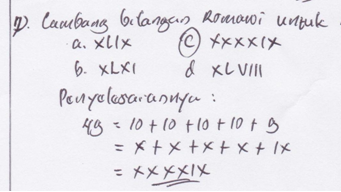 7). Lambang bilangan Romawi untuk
a. XLIX c XXXXIX
b. XLXI d XLVIII
Penyelesaiannya :
49 = 10 + 10 + 10 + 10 + 9
= X + X + X + X + IX
= XXXXIX